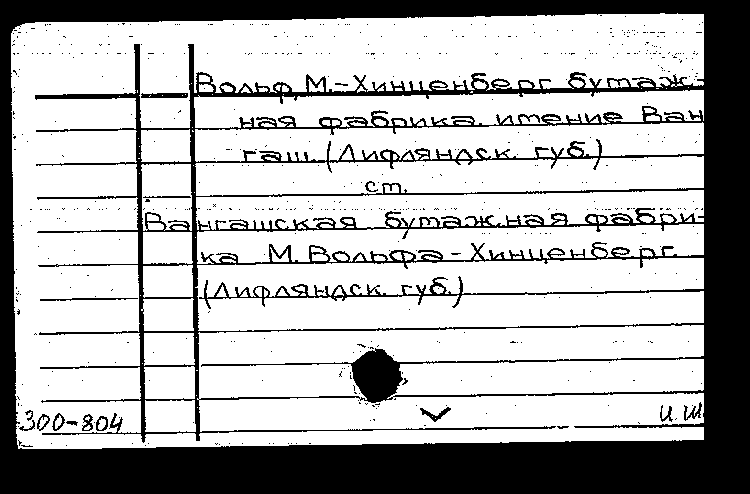 Вольф, М.-Хинценберг бутаж-
ная фабрика. итение Ван
гаш. (Лифляндск. губ.)
ст.
Вангашская бутажная фабри-
ка М. Вольфа-Хинценберг.
(Лифляндск. губ.)
300-804
И. Ш